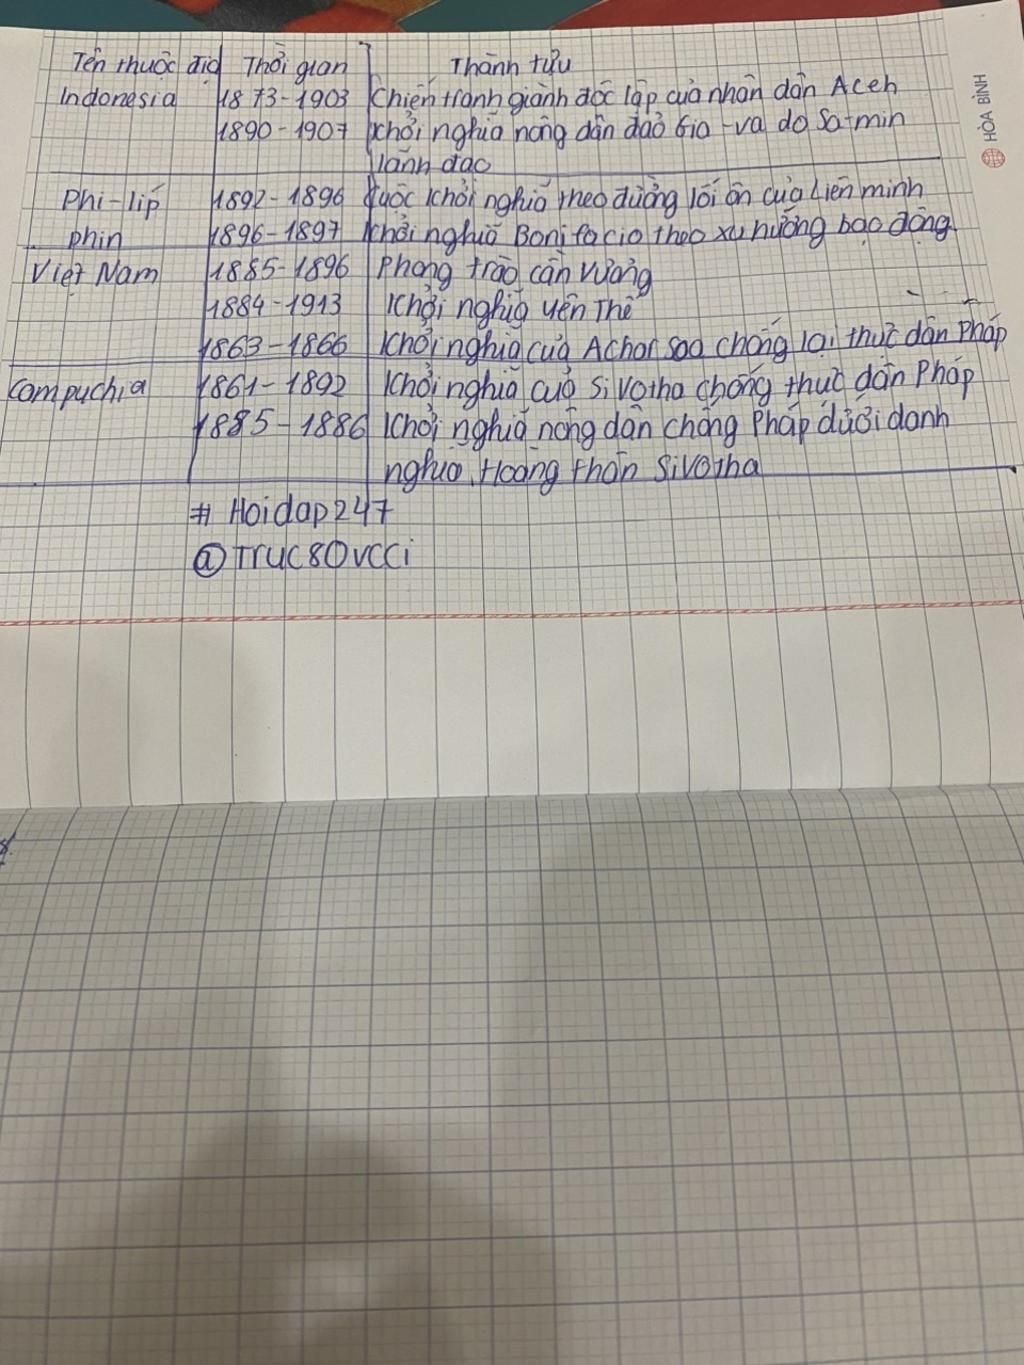 Tên thuộc địa Thời gian Thành tựu
Indonesia 1873-1903 Chiến tranh giành độc lập của nhân dân Aceh
1890-1907 khởi nghĩa nông dân đảo Gia-va do Sa-min
lãnh đạo
Phi-líp 1892-1896 Cuộc khởi nghĩa theo đường lối ôn của Liên minh
phin 1896-1897 khởi nghĩa Bonifacio theo xu hướng bạo động
Việt Nam 1885-1896 Phong trào cần vương
1884-1913 Khởi nghĩa yên Thế
1863-1866 Khởi nghĩa của Achar soa chống lại thực dân Pháp
Campuchia 1861-1892 Khởi nghĩa của Sivotha chống thực dân Pháp
1885-1886 Khởi nghĩa nông dân chống Pháp dưới danh
nghĩa Hoàng thân Sivotha
# Hoidap247
@Truc80vcci
HÒA BÌNH